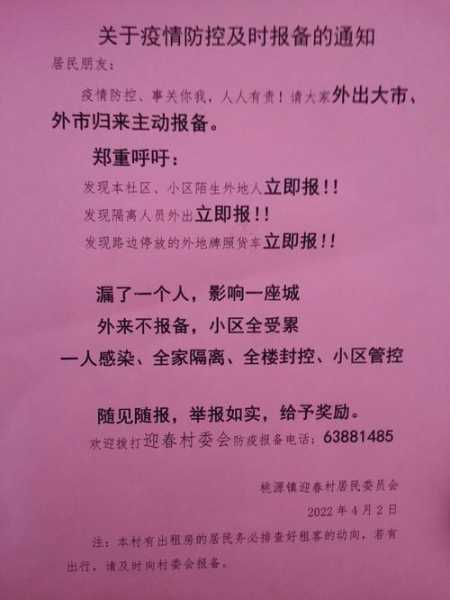 关于疫情防控及时报备的通知
居民朋友：
疫情防控、事关你我，人人有责！请大家外出大市、
外市归来主动报备。
郑重呼吁：
发现本社区、小区陌生外地人立即报！！
发现隔离人员外出立即报！！
发现路边停放的外地牌照货车立即报！！
漏了一个人，影响一座城
外来不报备，小区全受累
一人感染、全家隔离、全楼封控、小区管控
随见随报，举报如实，给予奖励。
欢迎拨打迎春村委会防疫报备电话：63881485
桃源镇迎春村居民委员会
2022 年 4 月 2 日
注：本村有出租房的居民务必排查好租客的动向，若有
出行，请及时向村委会报备。